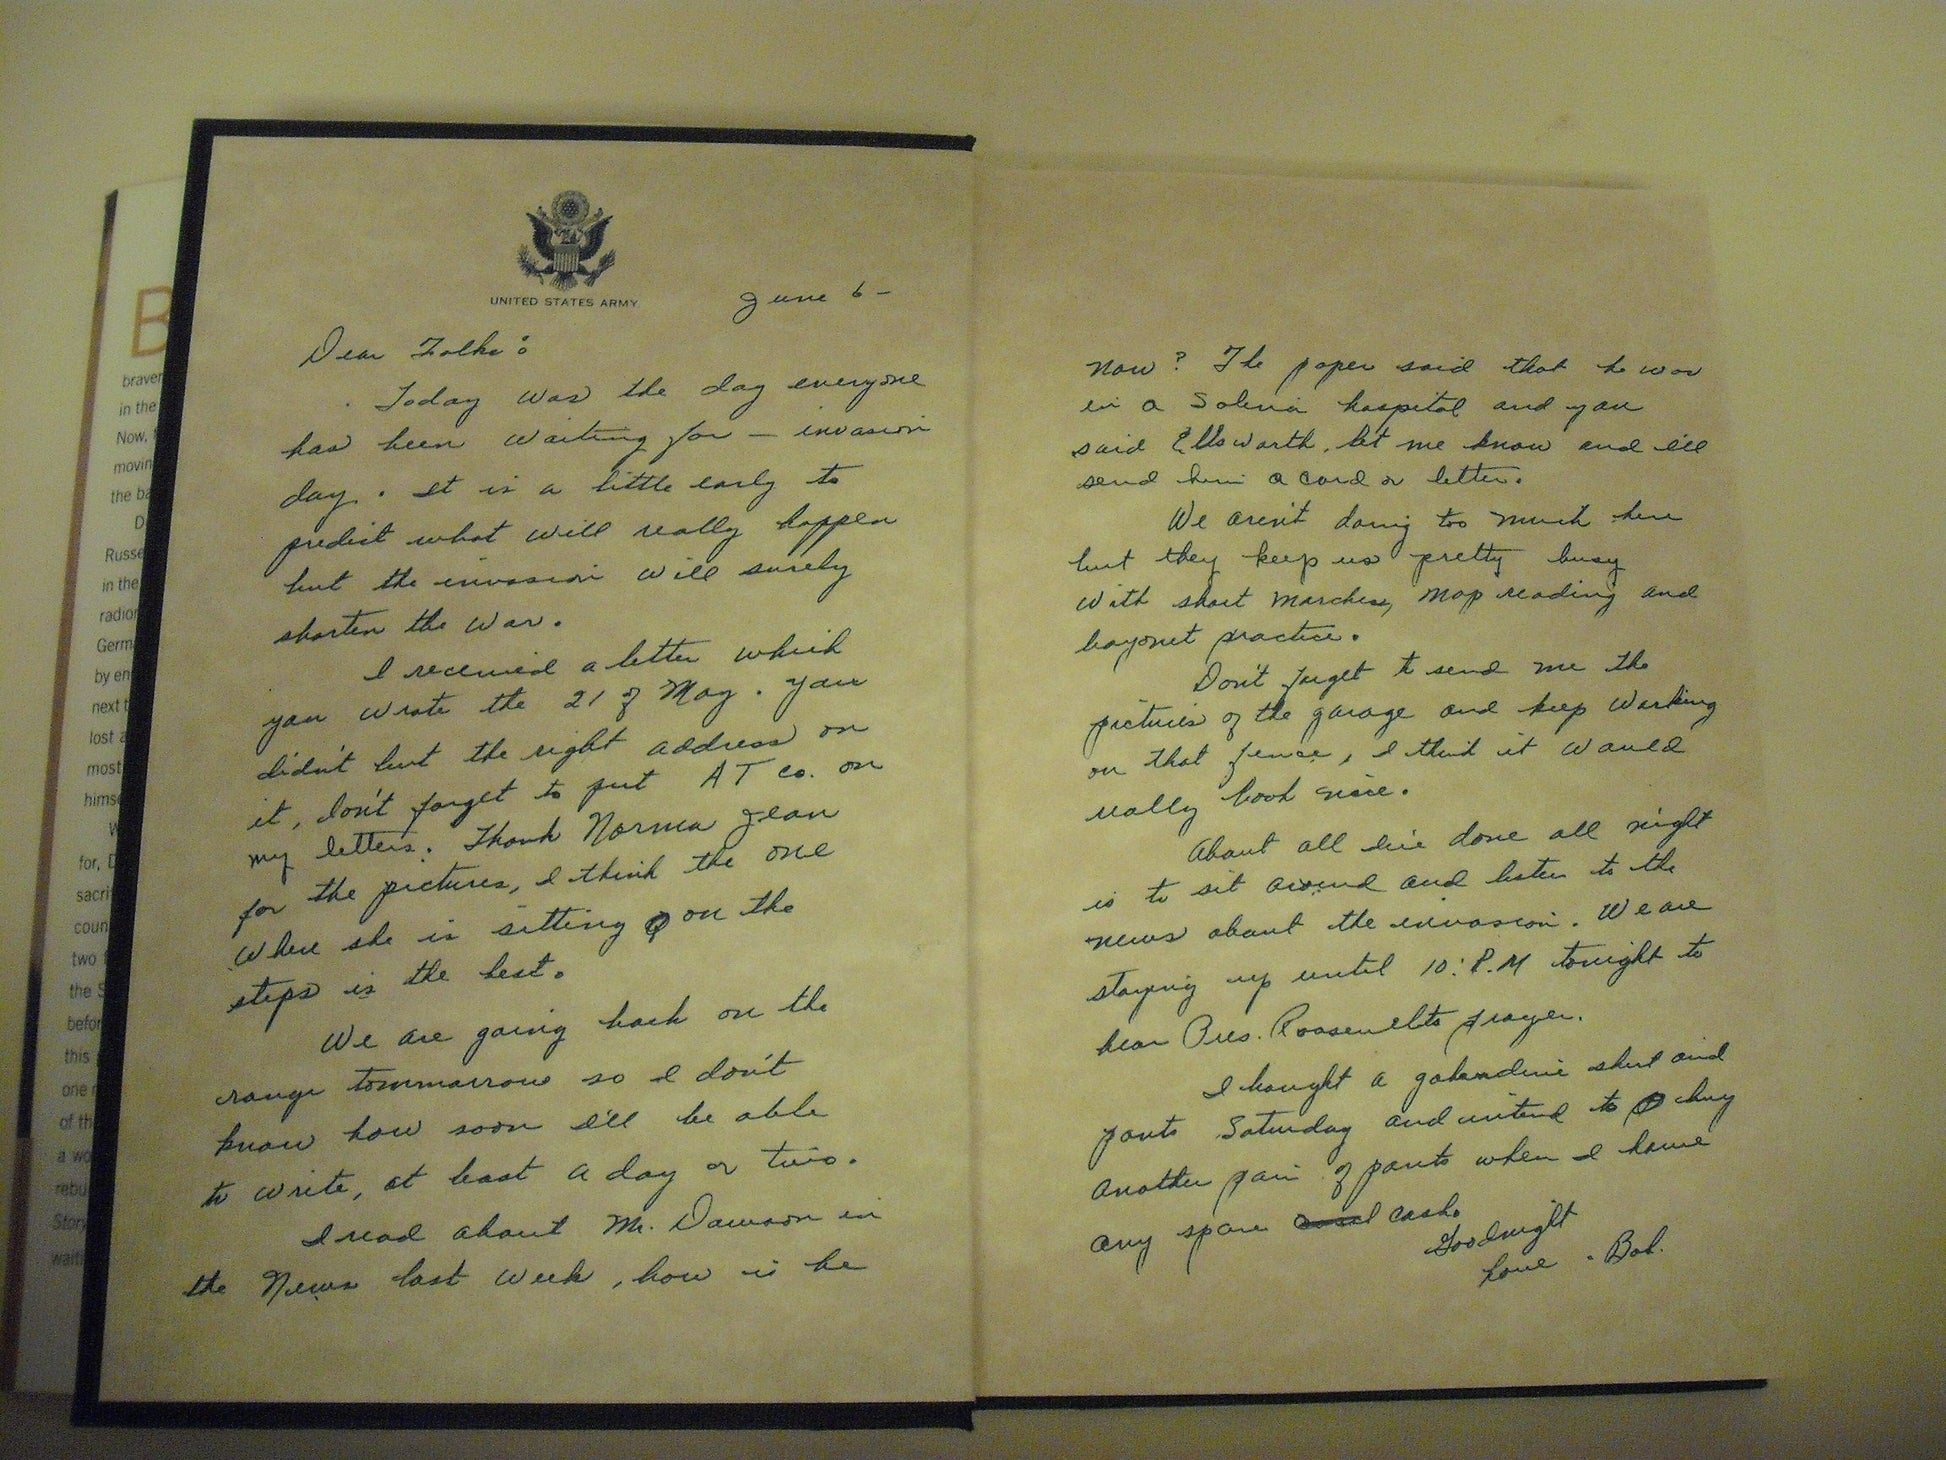 B
braver
in the
Now,
movin
the ba
D
Russe
in the
radio
Germ
by en
next t
lost a
most
himse
W
for, D
sacri
coun
two
the S
befor
this
one
of th
a wo
rebu
Story
waiti
UNITED STATES ARMY
June 6 -
Dear Folks:
Today was the day everyone
has been waiting for - invasion
day. It is a little early to
predict what will really happen
but the invasion will surely
shorten the war.
I received a letter which
you wrote the 21 of May. You
didn't put the right address on
it, don't forget to put AT co. on
my letters. Thank Norma Jean
for the pictures, I think the one
where she is sitting on the
steps is the best.
We are going back on the
range tommarrow so I don't
know how soon I'll be able
to write, at least a day or two.
I read about Mr. Dawson in
the News last week, how is he
now? The paper said that he was
in a Salina hospital and you
said Ellsworth, let me know and I'll
send him a card or letter.
We aren't doing too much here
but they keep us pretty busy
with short marches, map reading and
bayonet practice.
Don't forget to send me the
pictures of the garage and keep working
on that fence, I think it would
really look nice.
About all I've done all night
is to sit around and listen to the
news about the invasion. We are
staying up until 10: P.M tonight to
hear Pres. Roosevelts prayer.
I bought a gabardine shirt and
pants Saturday and intend to buy
another pair of pants when I have
any spare cash.
Goodnight
Love - Bob.